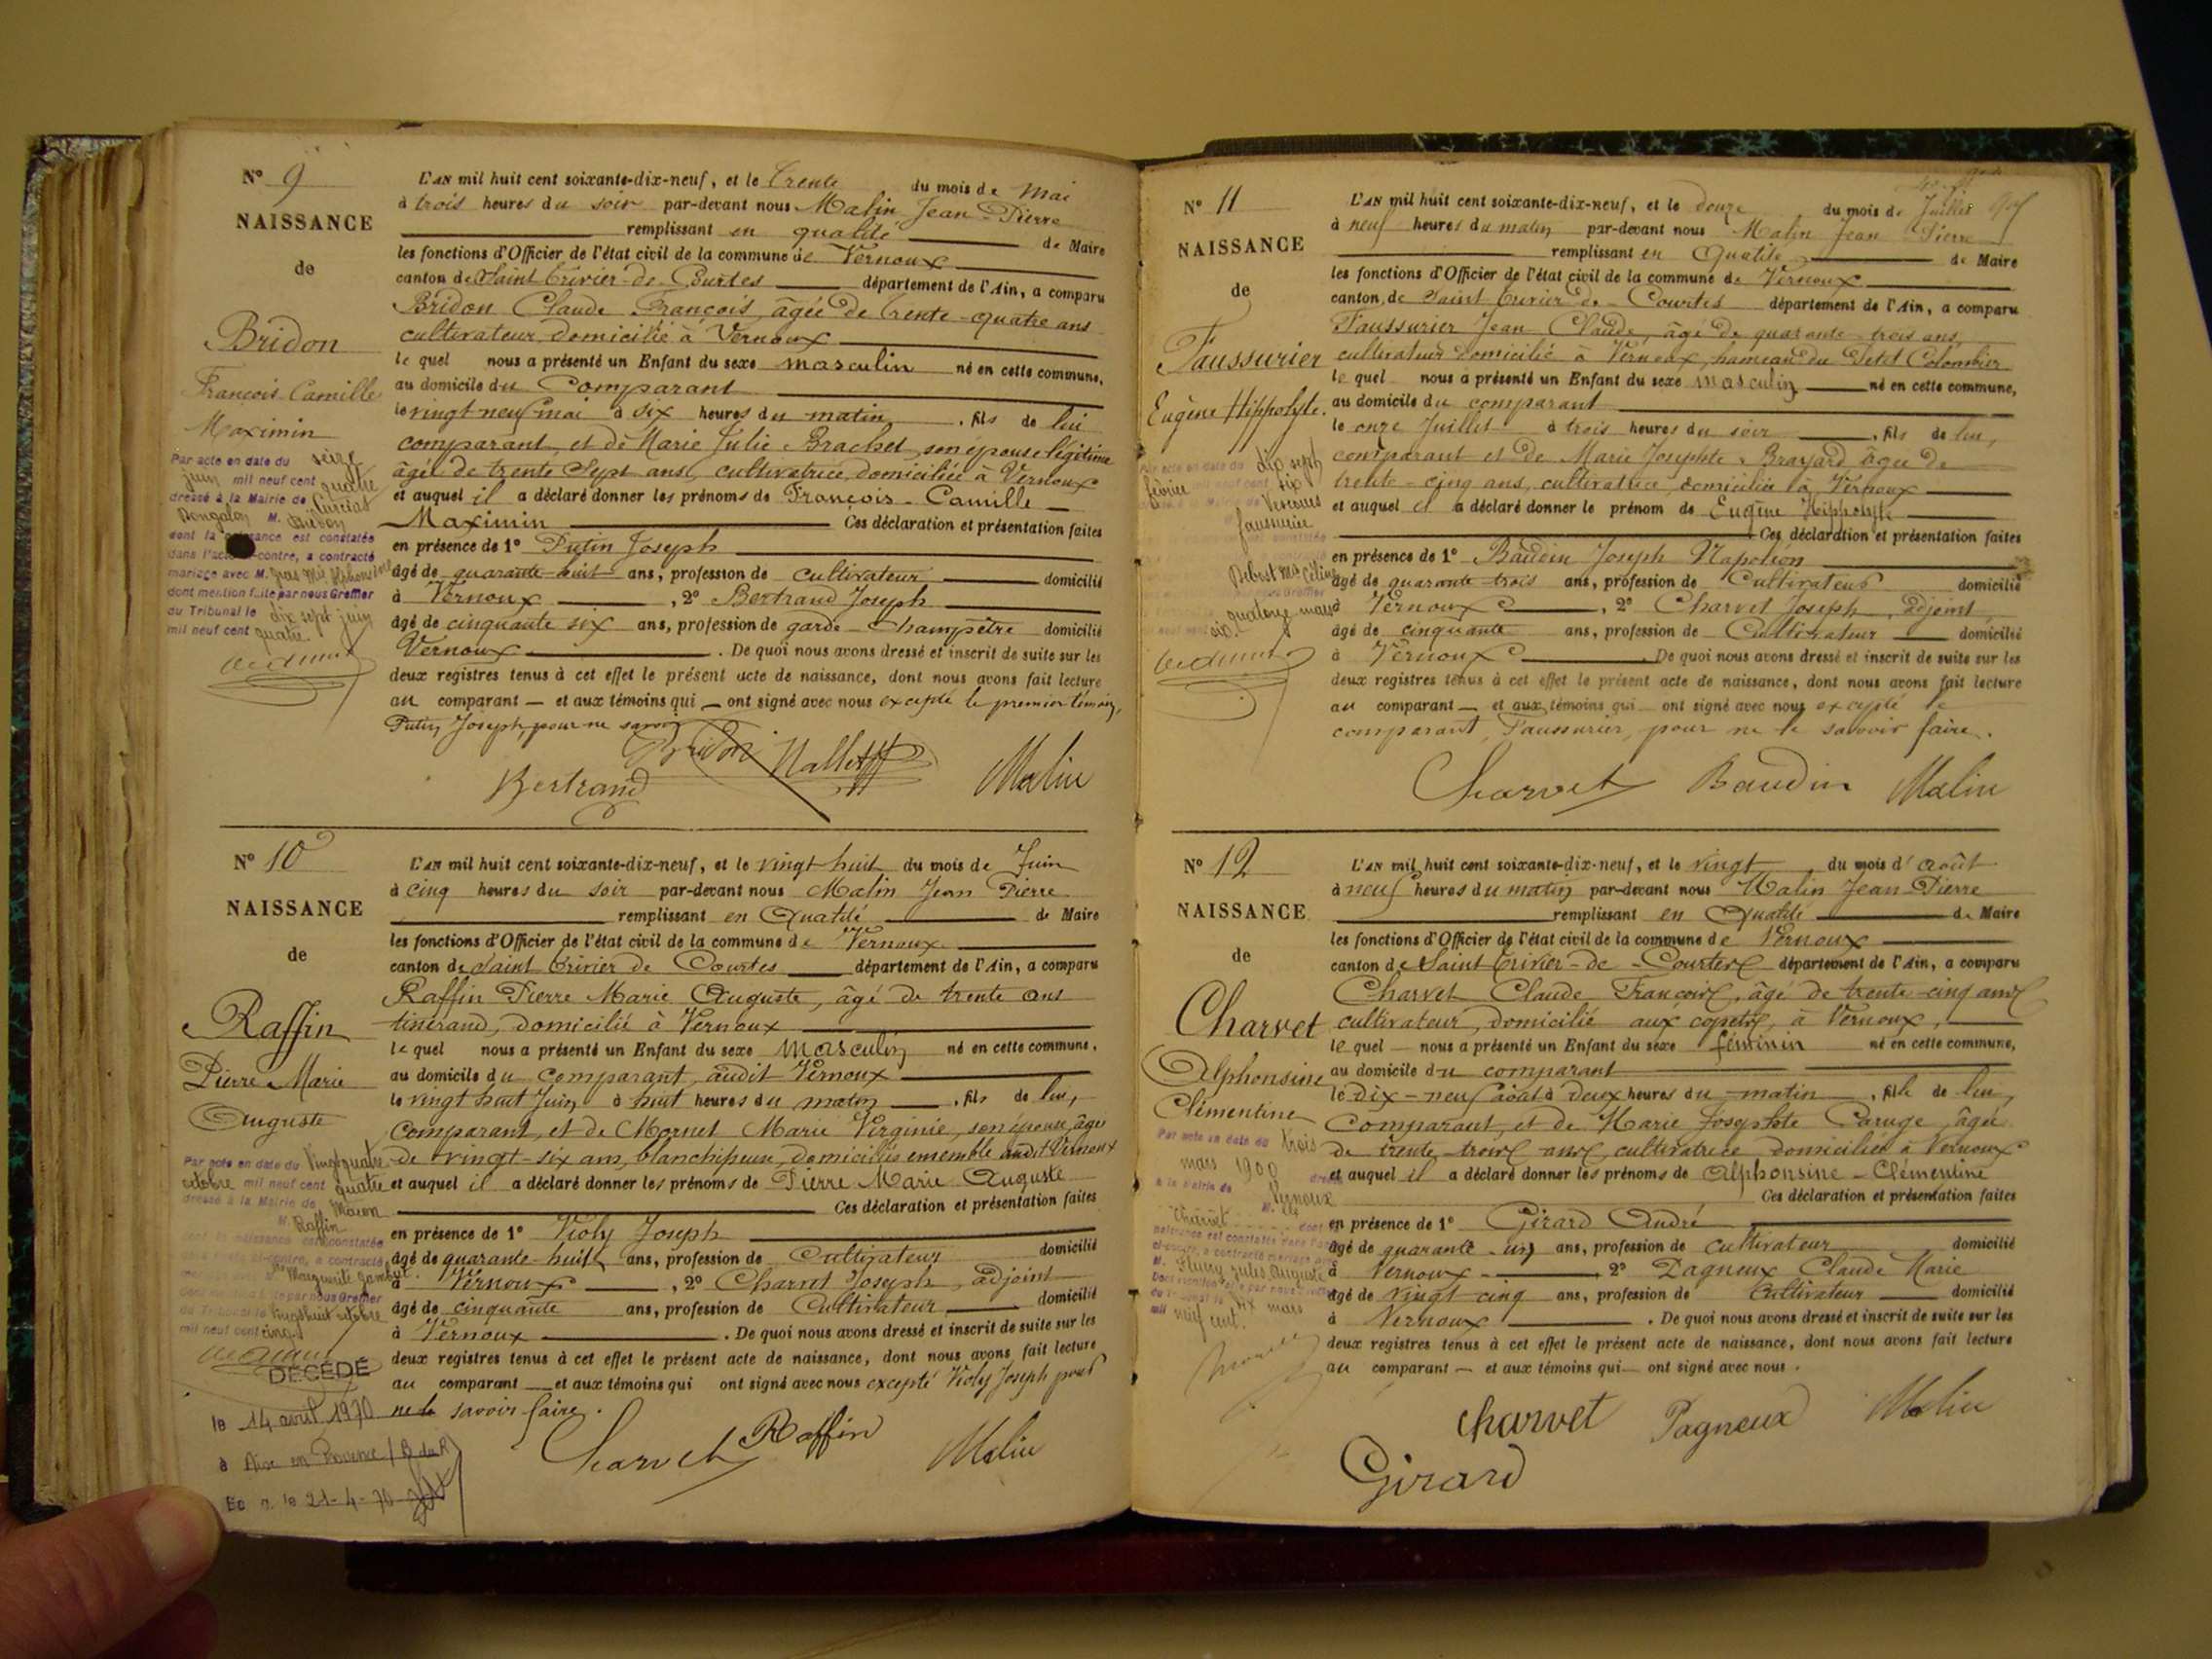 N° 9
NAISSANCE
de
Bridon
François Camille
Maximin
Par acte en date du seize
juin mil neuf cent quatre
dressé à la Mairie de Curciat
Dongalon M. Bridon
dont la naissance est constatée
dans l'acte ci-contre, a contracté
mariage avec M.
dont mention faite par nous Greffier
du Tribunal le dix sept juin
mil neuf cent quatre
L'AN mil huit cent soixante-dix-neuf, et le trente du mois de Mai
à trois heures du soir par-devant nous Malin Jean-Pierre
remplissant en qualité de Maire
les fonctions d'Officier de l'état civil de la commune de Vernoux
canton de Saint Trivier-de-Courtes département de l'Ain, a comparu
Bridon Claude François, âgée de trente-quatre ans
cultivateur, domicilié à Vernoux
le quel nous a présenté un Enfant du sexe masculin né en cette commune,
au domicile du Comparant
le vingt neuf mai à six heures du matin, fils de lui
comparant, et de Marie Julie Brachet, son épouse légitime
âgée de trente Sept ans, cultivatrice, domiciliée à Vernoux
et auquel il a déclaré donner les prénoms de François-Camille
Maximin Ces déclaration et présentation faites
en présence de 1° Putin Joseph
âgé de quarante-huit ans, profession de cultivateur domicilié
à Vernoux, 2° Bertrand Joseph
âgé de cinquante six ans, profession de garde-champêtre domicilié
Vernoux. De quoi nous avons dressé et inscrit de suite sur les
deux registres tenus à cet effet le présent acte de naissance, dont nous avons fait lecture
au comparant et aux témoins qui ont signé avec nous excepté le premier témoin,
Putin Joseph, pour ne savoir
Bridon
Bertrand Malin
N° 10
NAISSANCE
de
Raffin
Pierre Marie
Auguste
Par acte en date du vingt quatre
octobre mil neuf cent quatre
dressé à la Mairie de Macon
M. Raffin
dont la naissance est constatée
dans l'acte ci-contre, a contracté
Marguerite
par nous Greffier
du Tribunal le vingt huit octobre
mil neuf cent cinq
DÉCÉDÉ
le 14 avril 1970
à Aix en Provence (B du R)
le 21-4-70
L'AN mil huit cent soixante-dix-neuf, et le vingt huit du mois de Juin
à cinq heures du soir par-devant nous Malin Jean Pierre
remplissant en Qualité de Maire
les fonctions d'Officier de l'état civil de la commune de Vernoux
canton de Saint Trivier de Courtes département de l'Ain, a comparu
Raffin Pierre Marie Auguste, âgé de trente ans
tisserand, domicilié à Vernoux
le quel nous a présenté un Enfant du sexe masculin né en cette commune,
au domicile du comparant, audit Vernoux
le vingt huit Juin à huit heures du matin, fils de lui,
comparant, et de Mornet Marie Virginie, son épouse, âgée
de vingt-six ans, blanchisseuse, domiciliés ensemble audit Vernoux
et auquel il a déclaré donner les prénoms de Pierre Marie Auguste
Ces déclaration et présentation faites
en présence de 1° Violy Joseph
âgé de quarante-huit ans, profession de Cultivateur domicilié
à Vernoux, 2° Charvet Joseph, adjoint
âgé de cinquante ans, profession de Cultivateur domicilié
à Vernoux. De quoi nous avons dressé et inscrit de suite sur les
deux registres tenus à cet effet le présent acte de naissance, dont nous avons fait lecture
au comparant et aux témoins qui ont signé avec nous excepté Violy Joseph pour
ne le savoir faire.
Charvet Raffin Malin
N° 11
NAISSANCE
de
Faussurier
Eugène Hippolyte.
Par acte en date du dix sept
février mil neuf cent six
Vescours
faussurier
quatorze mars
L'AN mil huit cent soixante-dix-neuf, et le douze du mois de Juillet
à neuf heures du matin par-devant nous Malin Jean Pierre
remplissant en Qualité de Maire
les fonctions d'Officier de l'état civil de la commune de Vernoux
canton de Saint Trivier de Courtes département de l'Ain, a comparu
Faussurier Jean Claude, âgé de quarante-trois ans,
cultivateur domicilié à Vernoux, hameau du Petit Colombier
le quel nous a présenté un Enfant du sexe masculin né en cette commune,
au domicile du comparant
le onze Juillet à trois heures du soir, fils de lui,
comparant et de Marie Josephte Brayard âgée de
trente-cinq ans, cultivatrice, domiciliée à Vernoux
et auquel il a déclaré donner le prénom de Eugène Hippolyte
Ces déclaration et présentation faites
en présence de 1° Baudin Joseph Napoléon
âgé de quarante trois ans, profession de Cultivateur domicilié
à Vernoux, 2° Charvet Joseph, adjoint,
âgé de cinquante ans, profession de Cultivateur domicilié
à Vernoux De quoi nous avons dressé et inscrit de suite sur les
deux registres tenus à cet effet le présent acte de naissance, dont nous avons fait lecture
au comparant et aux témoins qui ont signé avec nous excepté le
comparant, Faussurier, pour ne le savoir faire.
Charvet Baudin Malin
N° 12
NAISSANCE
de
Charvet
Alphonsine
Clémentine
Par acte en date du trois
mars 1900 dressé
à la Mairie de Vernoux
Charvet dont
naissance est constatée dans l'acte
ci-contre, a contracté mariage avec
M. Jules Auguste
dix mars
mil neuf cent.
L'AN mil huit cent soixante-dix-neuf, et le vingt du mois d'août
à neuf heures du matin par-devant nous Malin Jean-Pierre
remplissant en Qualité de Maire
les fonctions d'Officier de l'état civil de la commune de Vernoux
canton de Saint Trivier-de-Courtes département de l'Ain, a comparu
Charvet Claude François, âgé de trente-cinq ans
cultivateur, domicilié aux copets, à Vernoux,
le quel nous a présenté un Enfant du sexe féminin né en cette commune,
au domicile du comparant
le dix-neuf août à deux heures du matin, fille de lui,
comparant, et de Marie Josephte Paruge, âgée
de trente-trois ans, cultivatrice domiciliée à Vernoux
et auquel il a déclaré donner les prénoms de Alphonsine-Clémentine
Ces déclaration et présentation faites
en présence de 1° Girard André
âgé de quarante-un ans, profession de cultivateur domicilié
à Vernoux, 2° Pagneux Claude Marie
âgé de vingt-cinq ans, profession de Cultivateur domicilié
à Vernoux. De quoi nous avons dressé et inscrit de suite sur les
deux registres tenus à cet effet le présent acte de naissance, dont nous avons fait lecture
au comparant et aux témoins qui ont signé avec nous.
Charvet Pagneux Malin
Girard